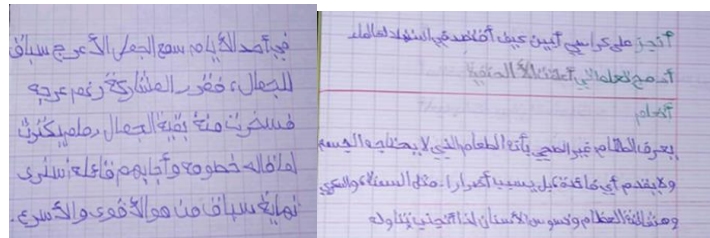 في أحد الأيام سمع الجمل الأعرج سباق
للجمال، فقرر المشاركة رغم عرجه
فسخرت منه بقية الجمال ولم يكثرت
لما قاله خصومه وأجابهم قائلا: سنرى
نهاية سباق من هو الأقوى والأسرع.
أنجز على كراسي أبين كيف أقتصد في استهلاك الماء
أدمج تعلماتي
أتعلم
يعرف الطعام غير الصحي بأنه الطعام الذي لا يحتاجه الجسم
ولا يقدم أي فائدة بل يسبب أضرارا. مثل السمنة والسكري
وهشاشة العظام وتسوس الأسنان لذا أتجنب تناوله